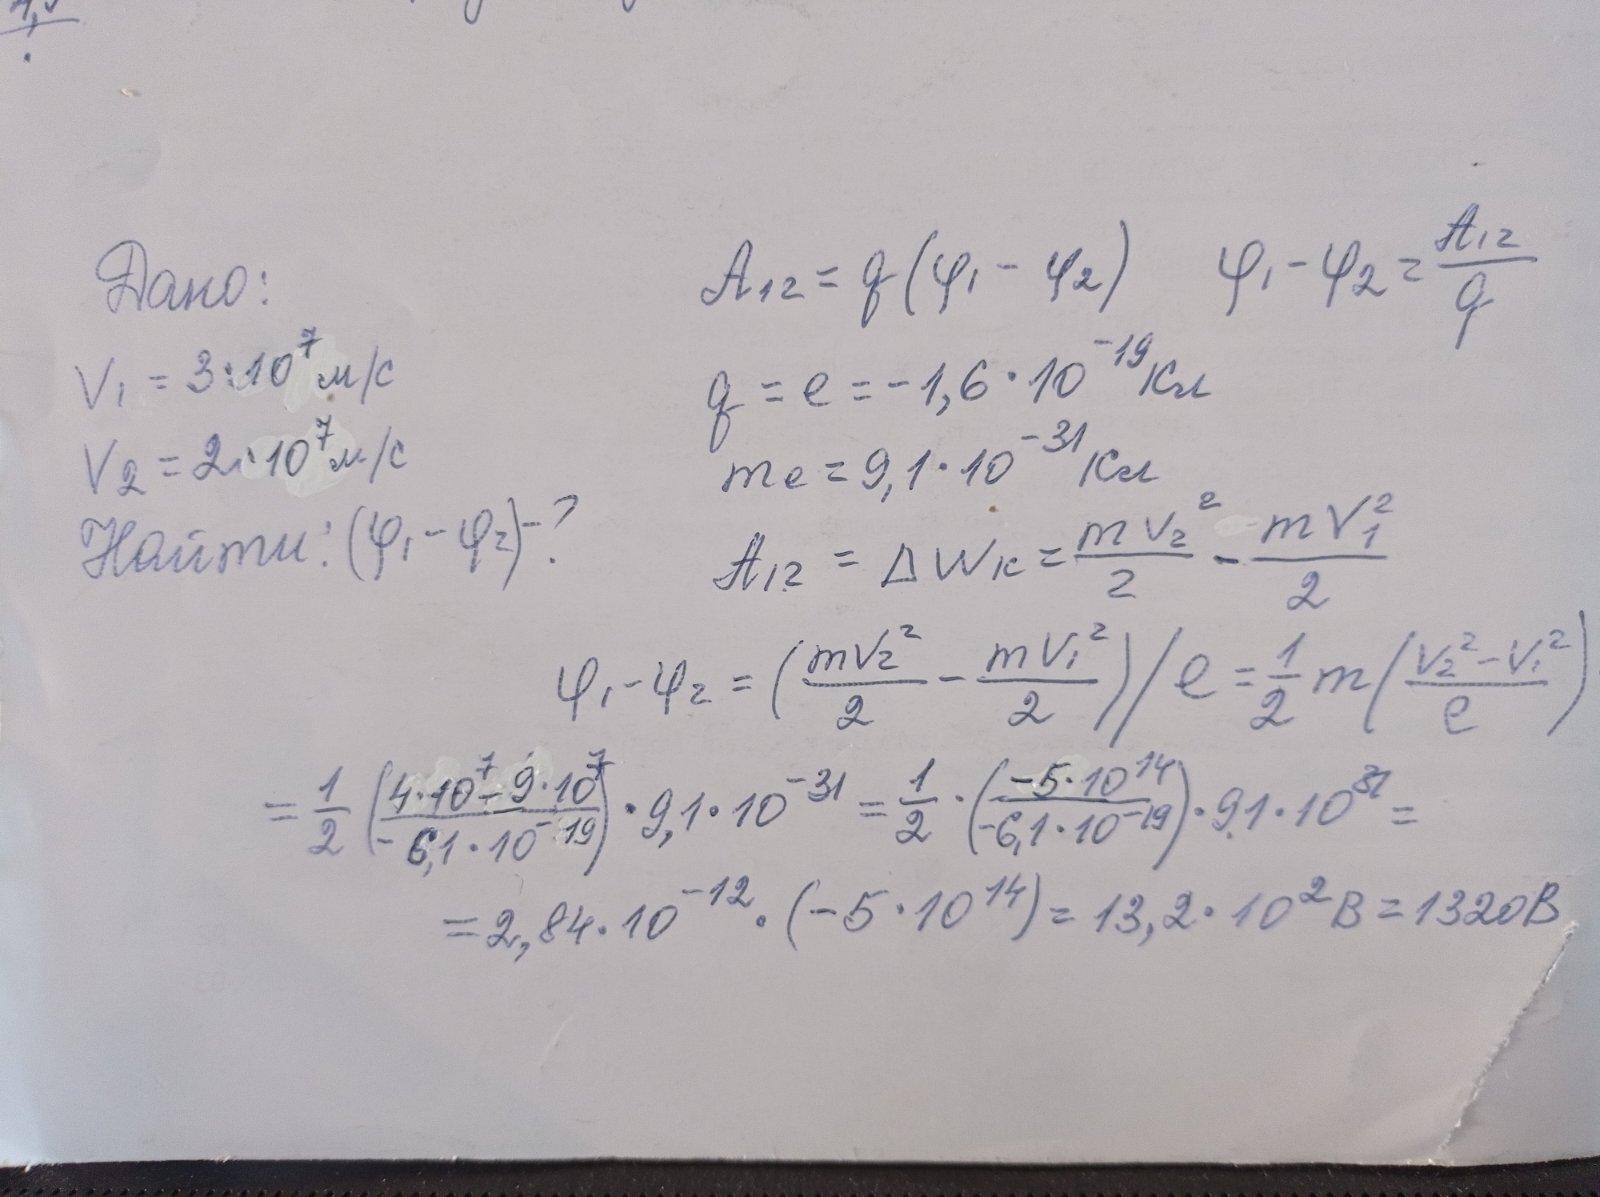 Дано:
V₁ = 3·10⁷ м/с
V₂ = 2·10⁷ м/с
Найти: (φ₁ - φ₂) - ?
A₁₂ = q(φ₁ - φ₂) φ₁ - φ₂ = A₁₂/q
q = e = -1,6·10⁻¹⁹ Кл
me = 9,1·10⁻³¹ Кл
A₁₂ = ΔWк = mV₂²/2 - mV₁²/2
φ₁ - φ₂ = (mV₂²/2 - mV₁²/2)/e = 1/2 m((V₂² - V₁²)/e)
= 1/2 ((4·10⁷ - 9·10⁷)/(-6,1·10⁻¹⁹)) · 9,1·10⁻³¹ = 1/2 · ((-5·10¹⁴)/(-6,1·10⁻¹⁹)) · 9,1·10³¹ =
= 2,84·10⁻¹² · (-5·10¹⁴) = 13,2·10² В = 1320В